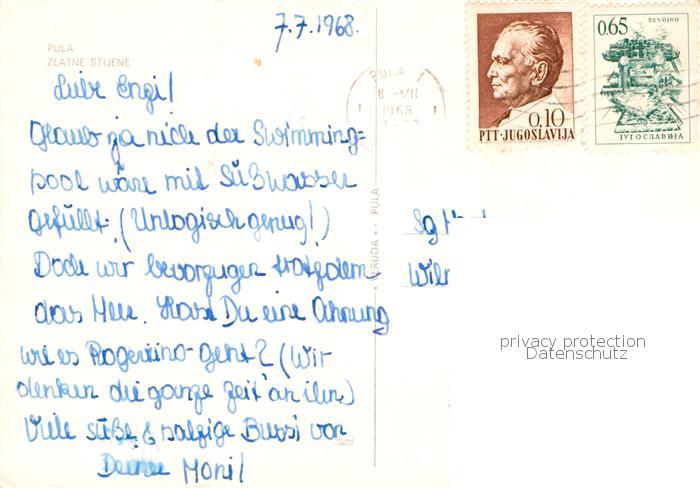 7.7.1968.
PULA
ZLATNE STIJENE
Liebe Engi!
Glaub ja nich der Swimming=
pool wäre mit Süßwasser
gefüllt. (Unlogisch genug!)
Doch wir bevorzugen trotzdem
das Meer. Hast Du eine Ahnung
wie es Rogerino geht? (Wir
denken die ganze Zeit an ihn)
Viele süße & salzige Bussi von
Deiner Moni!
PULA
8 -VII
1968
0.10
PTT·JUGOSLAVIJA
SEVOJNO
0.65
ЈУГОСЛАВИЈА
VERUDA · PULA
privacy protection
Datenschutz